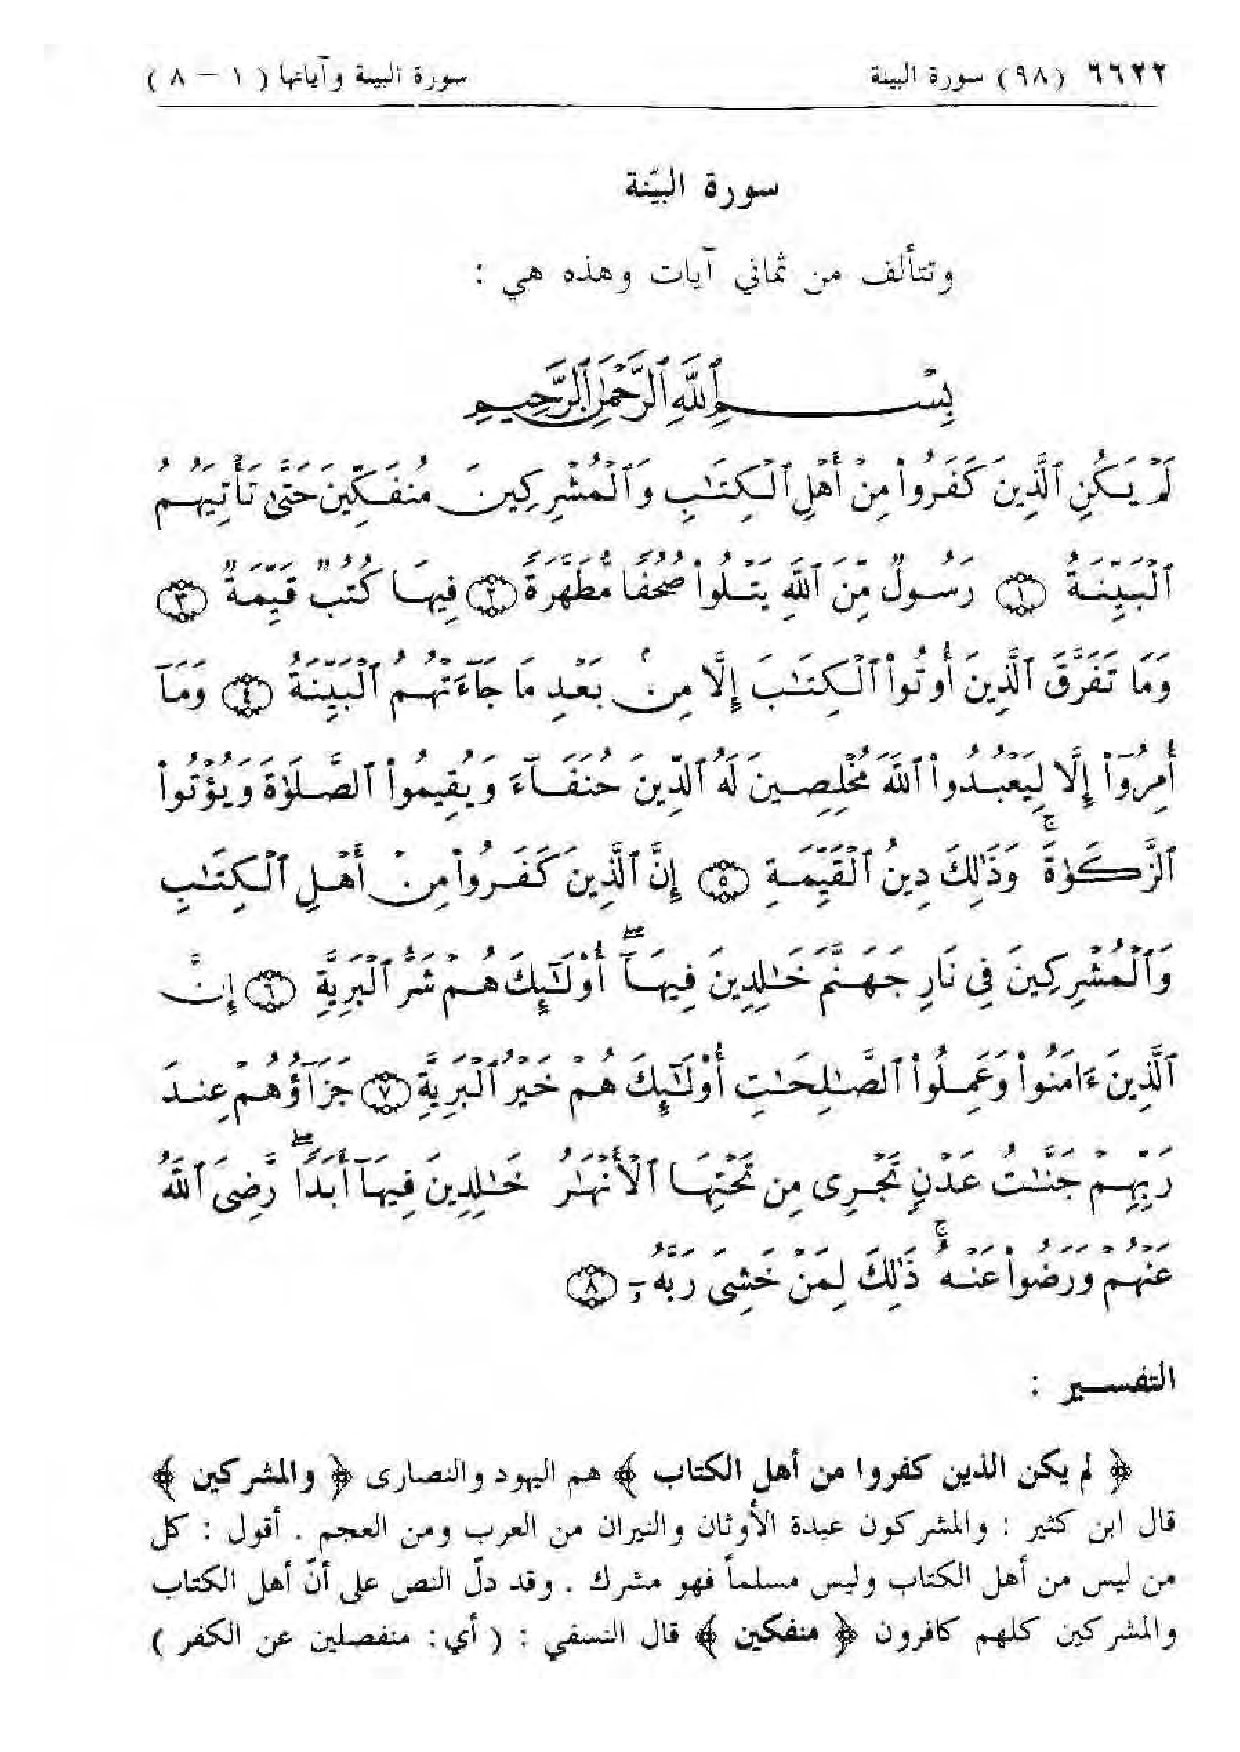 ٦٦٢٢ (٩٨) سورة البينة سورة البينة وآياتها ( ١ - ٨ )
سورة البيّنة
وتتألف من ثماني آيات وهذه هي :
بِسْمِ ٱللَّهِ ٱلرَّحْمَٰنِ ٱلرَّحِيمِ
لَمْ يَكُنِ ٱلَّذِينَ كَفَرُوا۟ مِنْ أَهْلِ ٱلْكِتَٰبِ وَٱلْمُشْرِكِينَ مُنفَكِّينَ حَتَّىٰ تَأْتِيَهُمُ
ٱلْبَيِّنَةُ ﴿١﴾ رَسُولٌ مِّنَ ٱللَّهِ يَتْلُوا۟ صُحُفًا مُّطَهَّرَةً ﴿٢﴾ فِيهَا كُتُبٌ قَيِّمَةٌ ﴿٣﴾
وَمَا تَفَرَّقَ ٱلَّذِينَ أُوتُوا۟ ٱلْكِتَٰبَ إِلَّا مِنۢ بَعْدِ مَا جَآءَتْهُمُ ٱلْبَيِّنَةُ ﴿٤﴾ وَمَآ
أُمِرُوٓا۟ إِلَّا لِيَعْبُدُوا۟ ٱللَّهَ مُخْلِصِينَ لَهُ ٱلدِّينَ حُنَفَآءَ وَيُقِيمُوا۟ ٱلصَّلَوٰةَ وَيُؤْتُوا۟
ٱلزَّكَوٰةَ ۚ وَذَٰلِكَ دِينُ ٱلْقَيِّمَةِ ﴿٥﴾ إِنَّ ٱلَّذِينَ كَفَرُوا۟ مِنْ أَهْلِ ٱلْكِتَٰبِ
وَٱلْمُشْرِكِينَ فِى نَارِ جَهَنَّمَ خَٰلِدِينَ فِيهَآ ۚ أُو۟لَٰٓئِكَ هُمْ شَرُّ ٱلْبَرِيَّةِ ﴿٦﴾ إِنَّ
ٱلَّذِينَ ءَامَنُوا۟ وَعَمِلُوا۟ ٱلصَّٰلِحَٰتِ أُو۟لَٰٓئِكَ هُمْ خَيْرُ ٱلْبَرِيَّةِ ﴿٧﴾ جَزَآؤُهُمْ عِندَ
رَبِّهِمْ جَنَّٰتُ عَدْنٍ تَجْرِى مِن تَحْتِهَا ٱلْأَنْهَٰرُ خَٰلِدِينَ فِيهَآ أَبَدًا ۖ رَّضِىَ ٱللَّهُ
عَنْهُمْ وَرَضُوا۟ عَنْهُ ۚ ذَٰلِكَ لِمَنْ خَشِىَ رَبَّهُۥ ﴿٨﴾
التفسير :
﴿ لم يكن الذين كفروا من أهل الكتاب ﴾ هم اليهود والنصارى ﴿ والمشركين ﴾
قال ابن كثير : والمشركون عبدة الأوثان والنيران من العرب ومن العجم . أقول : كل
من ليس من أهل الكتاب وليس مسلماً فهو مشرك . وقد دلّ النص على أنّ أهل الكتاب
والمشركين كلهم كافرون ﴿ منفكين ﴾ قال النسفي : ( أي: منفصلين عن الكفر )